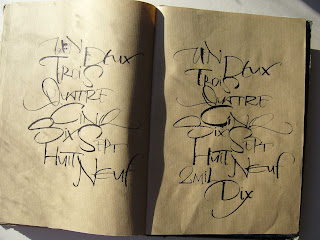 un
Deux
Trois
Quatre
Cinq
Six Sept
Huit
Neuf
un
Deux
Trois
Quatre
Cinq
Six Sept
Huit Neuf
2mil
Dix